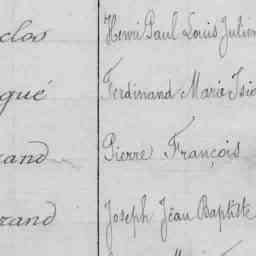 clos Henri Paul Louis Julien
qué Ferdinand Marie Isid
rand Pierre François
rand Joseph Jean Baptiste